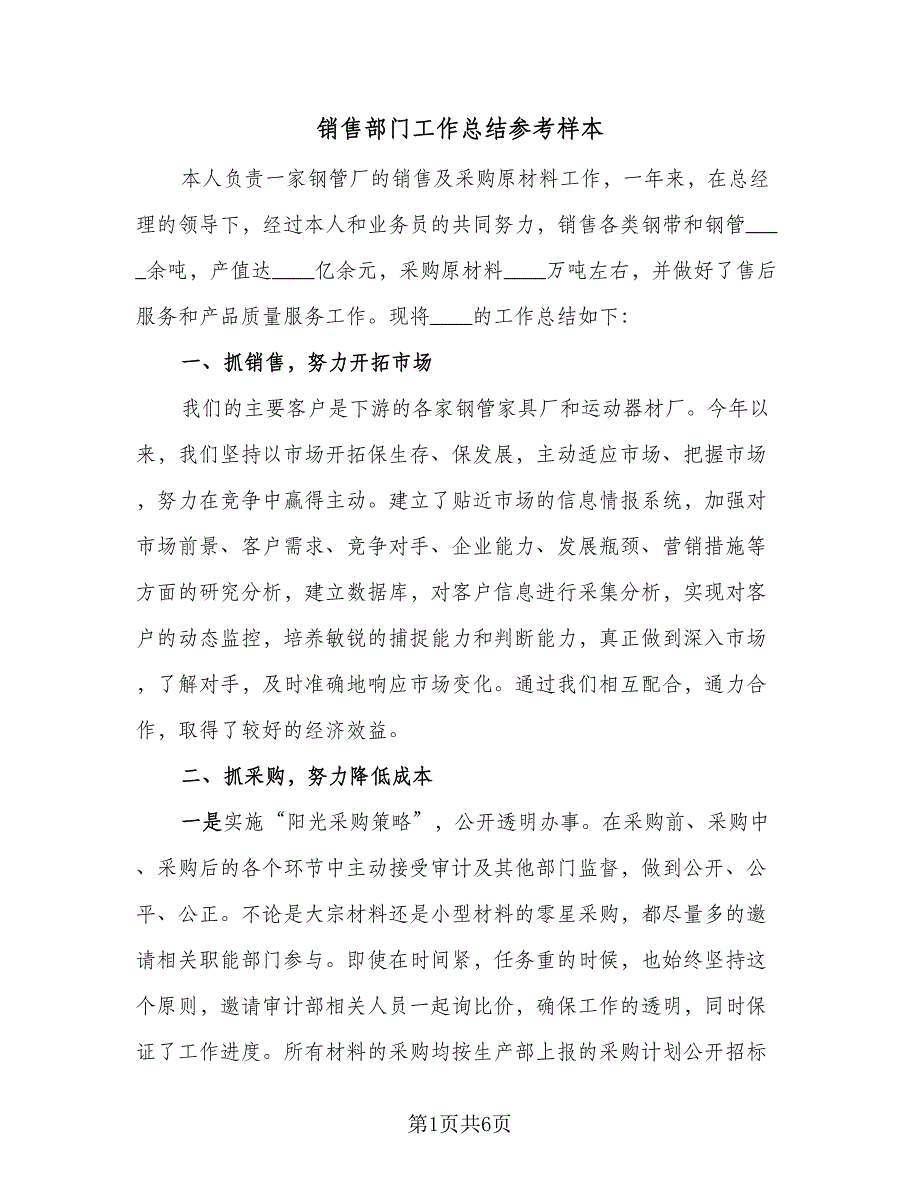 销售部门工作总结参考样本
本人负责一家钢管厂的销售及采购原材料工作，一年来，在总经
理的领导下，经过本人和业务员的共同努力，销售各类钢带和钢管___
_余吨，产值达____亿余元，采购原材料____万吨左右，并做好了售后
服务和产品质量服务工作。现将____的工作总结如下：
一、抓销售，努力开拓市场
我们的主要客户是下游的各家钢管家具厂和运动器材厂。今年以
来，我们坚持以市场开拓保生存、保发展，主动适应市场、把握市场
，努力在竞争中赢得主动。建立了贴近市场的信息情报系统，加强对
市场前景、客户需求、竞争对手、企业能力、发展瓶颈、营销措施等
方面的研究分析，建立数据库，对客户信息进行采集分析，实现对客
户的动态监控，培养敏锐的捕捉能力和判断能力，真正做到深入市场
，了解对手，及时准确地响应市场变化。通过我们相互配合，通力合
作，取得了较好的经济效益。
二、抓采购，努力降低成本
一是实施“阳光采购策略”，公开透明办事。在采购前、采购中
、采购后的各个环节中主动接受审计及其他部门监督，做到公开、公
平、公正。不论是大宗材料还是小型材料的零星采购，都尽量多的邀
请相关职能部门参与。即使在时间紧，任务重的时候，也始终坚持这
个原则，邀请审计部相关人员一起询比价，确保工作的透明，同时保
证了工作进度。所有材料的采购均按生产部上报的采购计划公开招标
第1页共6页